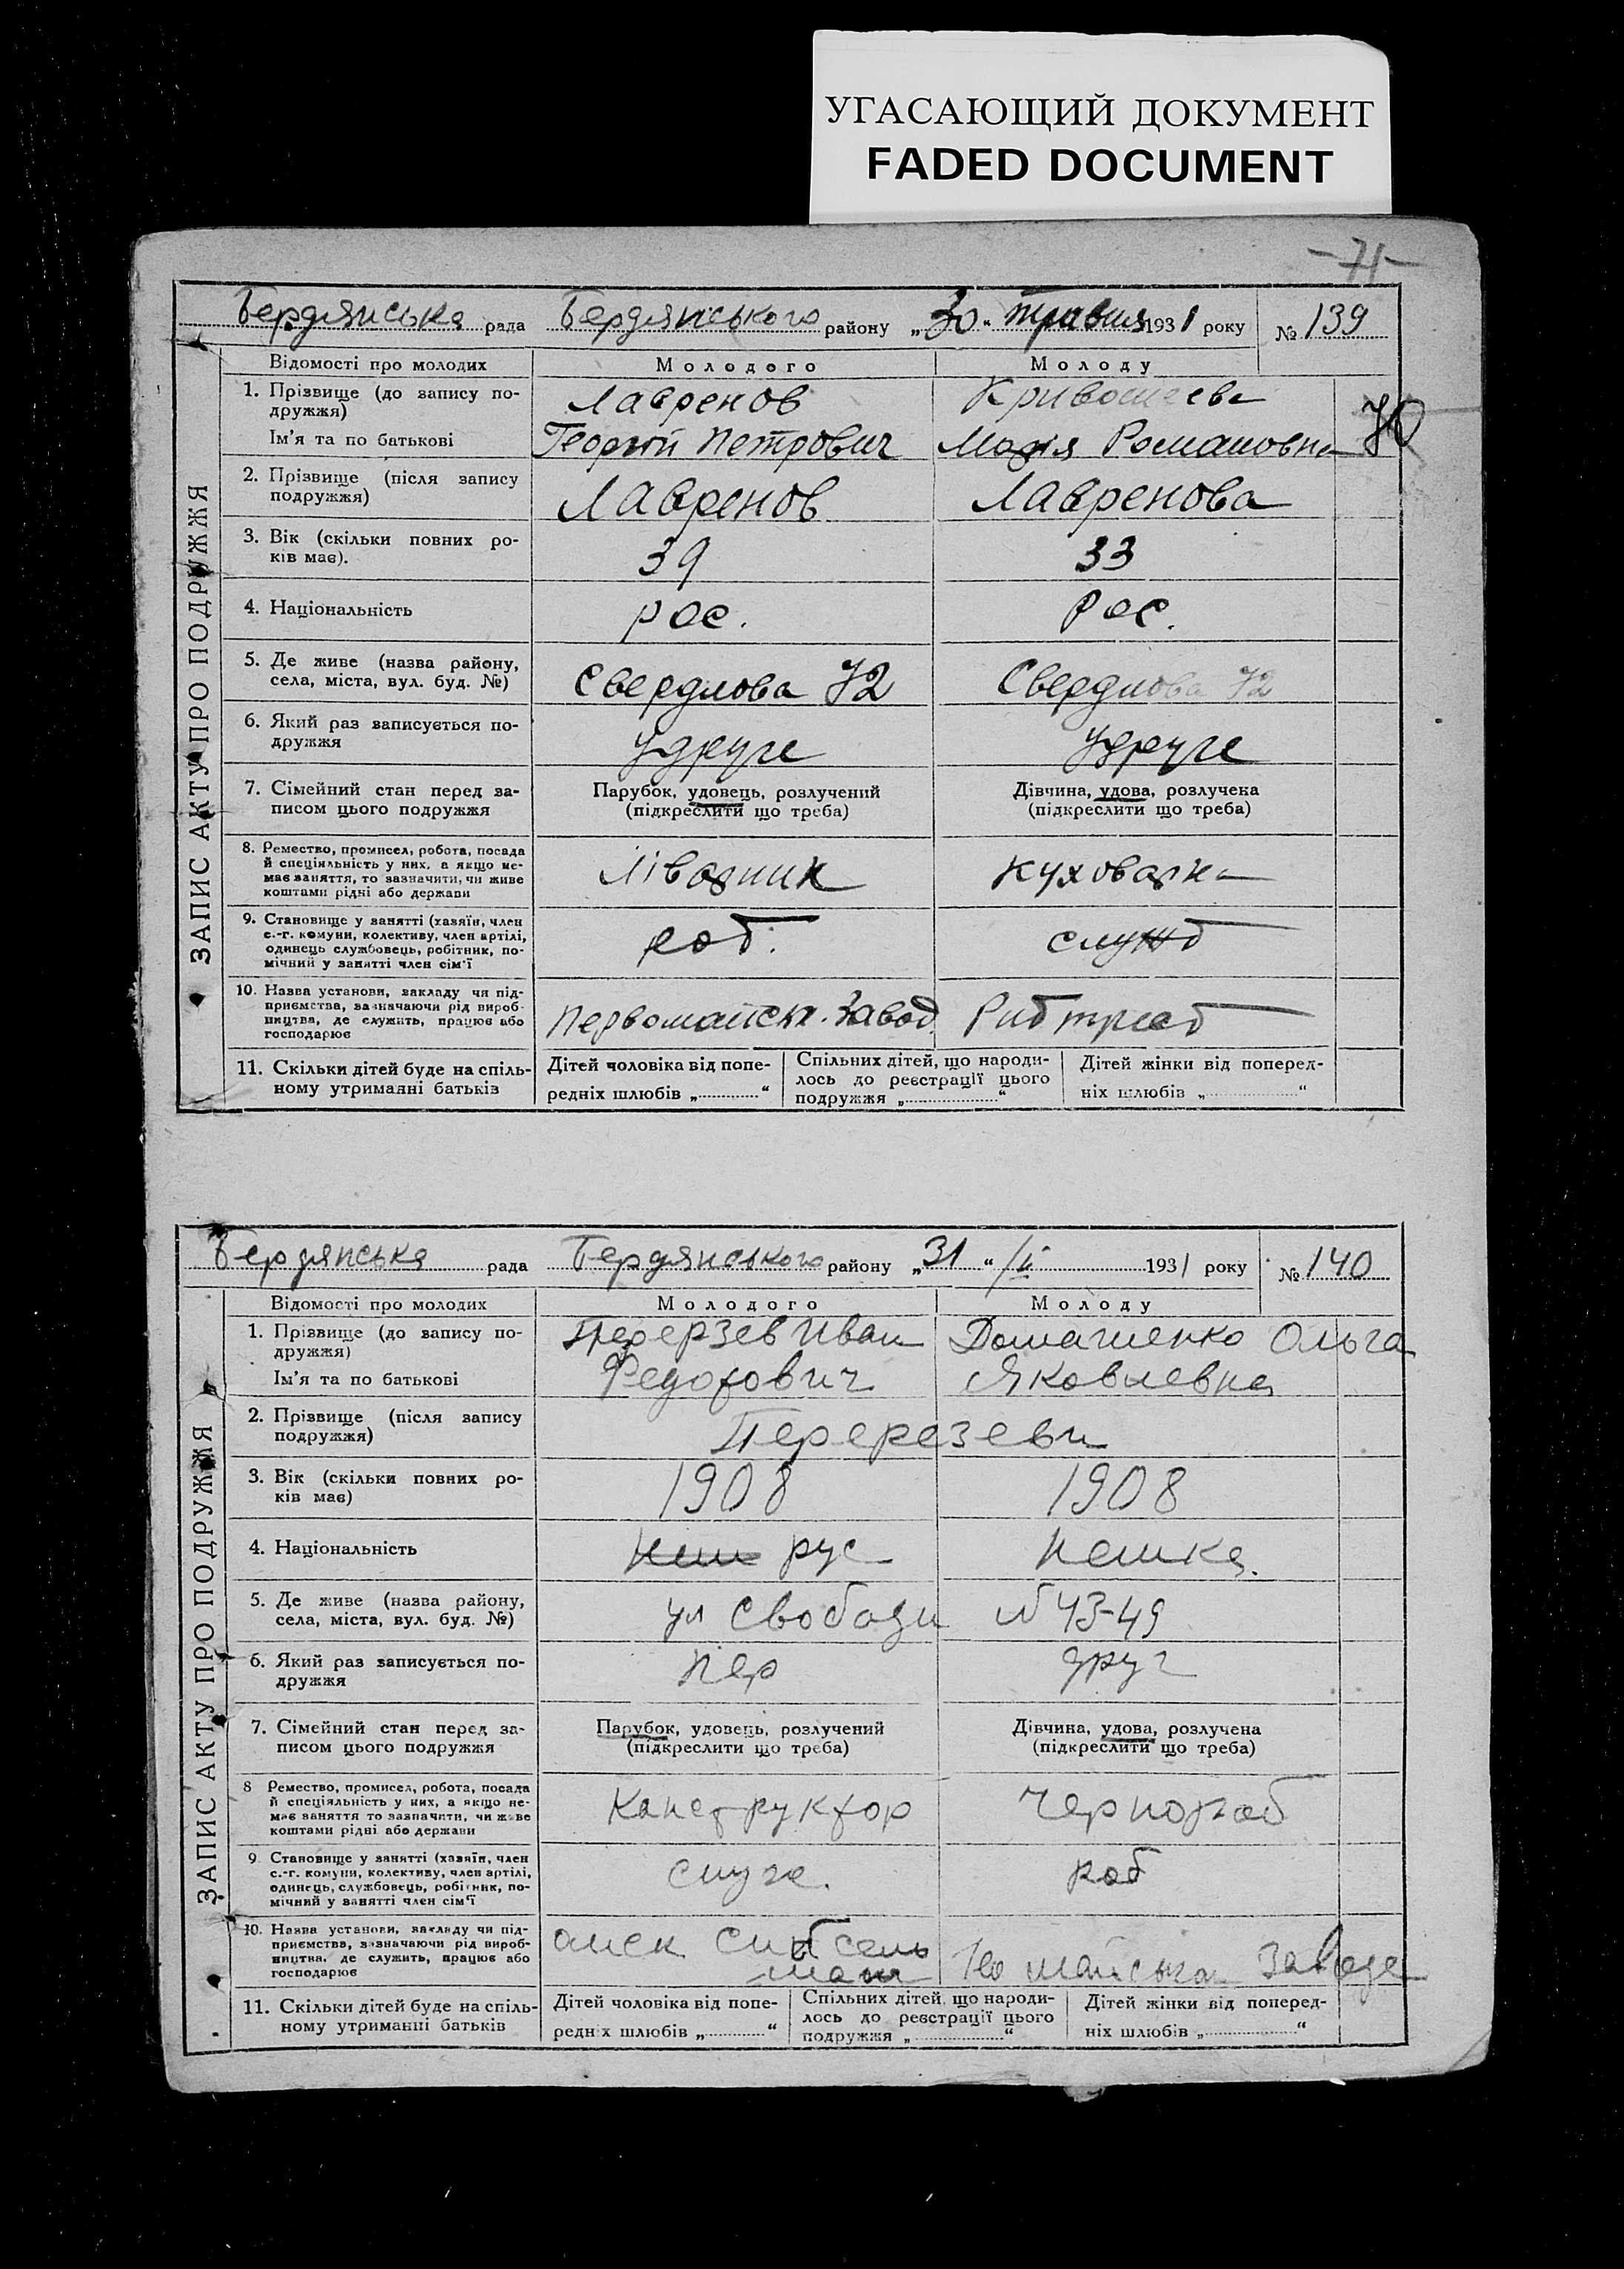 УГАСАЮЩИЙ ДОКУМЕНТ
FADED DOCUMENT
-71-
Бердянська рада Бердянського району „30“ травня 1931 року № 139
ЗАПИС АКТУ ПРО ПОДРУЖЖЯ
Відомості про молодих Молодого Молоду
1. Прізвище (до запису по-
дружжя) Лавренов Кривошеева
Ім'я та по батькові Георгій Петрович Марія Романовна 70
2. Прізвище (після запису
подружжя) Лавренов Лавренова
3. Вік (скільки повних ро-
ків має). 39 33
4. Національність рос. рос.
5. Де живе (назва району,
села, міста, вул. буд. №) Свердлова 72 Свердлова 72
6. Який раз записується по-
дружжя удруге удруге
7. Сімейний стан перед за- Парубок, удовець, розлучений Дівчина, удова, розлучена
писом цього подружжя (підкреслити що треба) (підкреслити що треба)
8. Ремество, промисел, робота, посада
й спеціяльність у них, а якщо не-
має заняття, то зазначити, чи живе
коштами рідні або держави Ліварник куховарка
9. Становище у занятті (хазяїн, член
с.-г. комуни, колективу, член артілі,
одинець службовець, робітник, по-
мічний у занятті член сім'ї роб. служб
10. Назва установи, закладу чи під-
приємства, зазначаючи рід вироб-
ництва, де служить, працює або
господарює Первомайськ. Завод Рибтрест
11. Скільки дітей буде на спіль- Дітей чоловіка від попе- Спільних дітей, що народи- Дітей жінки від поперед-
ному утриманні батьків редніх шлюбів „ “ лось до реєстрації цього ніх шлюбів „ “
подружжя „ “
Бердянська рада Бердянського району „31“ /V 1931 року № 140
ЗАПИС АКТУ ПРО ПОДРУЖЖЯ
Відомості про молодих Молодого Молоду
1. Прізвище (до запису по- Иван Домашенко Ольга
дружжя)
Ім'я та по батькові Федорович Яковлевна
2. Прізвище (після запису
подружжя) Перерезеви
3. Вік (скільки повних ро-
ків має) 1908 1908
4. Національність рус
5. Де живе (назва району,
села, міста, вул. буд. №) ул Свободи № 43-49
6. Який раз записується по-
дружжя пер друг
7. Сімейний стан перед за- Парубок, удовець, розлучений Дівчина, удова, розлучена
писом цього подружжя (підкреслити що треба) (підкреслити що треба)
8 Ремество, промисел, робота, посада
й спеціяльність у них, а якщо не-
має заняття то зазначити, чи живе
коштами рідні або держави Конструктор Чернораб
9. Становище у занятті (хазяїн, член
с.-г. комуни, колективу, член артілі,
одинець, службовець, робітник, по-
мічний у занятті член сім'ї роб
10. Назва установи, закладу чи під-
приємства, зазначаючи рід вироб-
ництва, де служить, працює або
господарює
11. Скільки дітей буде на спіль- Дітей чоловіка від попе- Спільних дітей, що народи- Дітей жінки від поперед-
ному утриманні батьків редніх шлюбів „ “ лось до реєстрації цього ніх шлюбів „ “
подружжя „ “